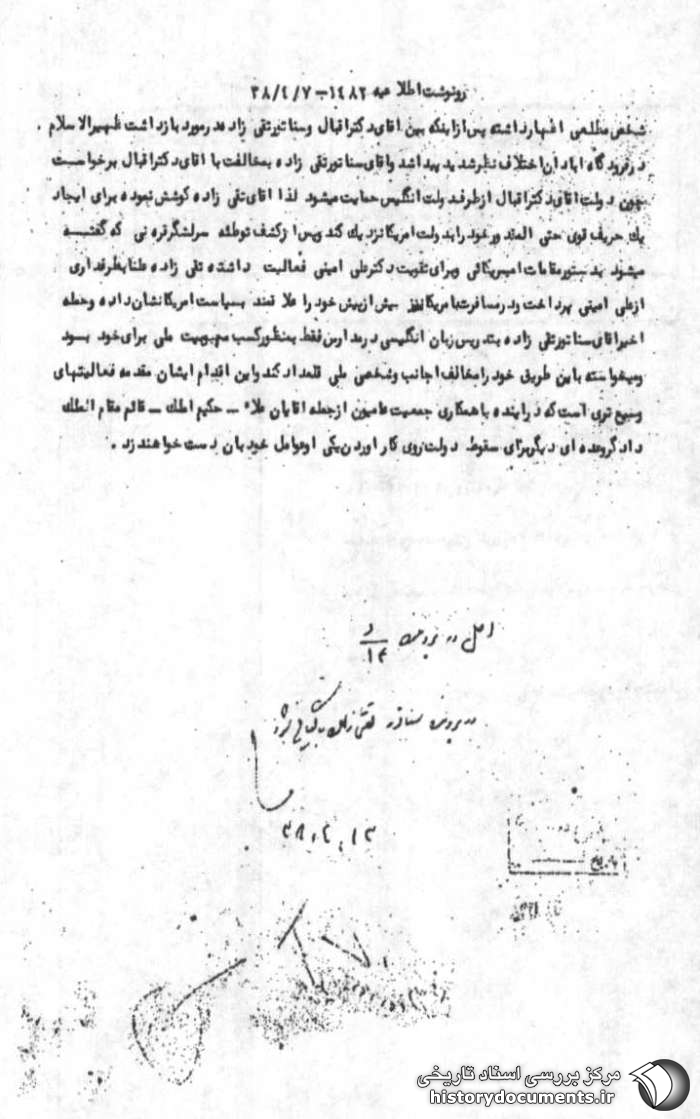 رونوشت اطلاعیه ۱۴۸۲-۳۸/۴/۷
شخص مطلعی اظهار داشته پس از اینکه بین اقای دکتر اقبال و سناتور تقی زاده در مورد بازداشت ظهیرالاسلام
در فرودگاه ابادان اختلاف نظر شدید پیدا شد واقای سناتور تقی زاده بمخالفت با اقای دکتر اقبال برخواست
چون دولت اقای دکتر اقبال از طرف دولت انگلیس حمایت میشود لذا اقای تقی زاده کوشش نموده برای ایجاد
یک حریف قوی حتی المقدور خود را بدولت امریکا نزدیک کند و پس از کشف توطئه سرلشگر قرنی که گفته
میشود بدستور مقامات امریکائی و برای تقویت دکتر علی امینی فعالیت داشته تقی زاده علنا بطرفداری
از علی امینی پرداخت و در مسافرت بامریکا نیز بیش از پیش خود را علاقمند بسیاست امریکا نشان داده و حمله
اخیر اقای سناتور تقی زاده بتدریس زبان انگلیسی در مدارس فقط بمنظور کسب محبوبیت ملی برای خود بود
و میخواسته باین طریق خود را مخالف اجانب و شخصی ملی قلمداد کند و این اقدام ایشان مقدمه فعالیتهای
وسیع تری است که در اینده با همکاری جمعیت عامیون از جمله اقایان علاء - حکیم الملک - قائم مقام الملک
دادگر و عده ای دیگر برای سقوط دولت و روی کار اوردن یکی از عوامل خود بان دست خواهند زد .
اصل در پرونده
۱۴
در پرونده سناتور تقی زاده بایگانی شود
۳۸،۴،۱۳
تاریخ
مرکز بررسی اسناد تاریخی
historydocuments.ir